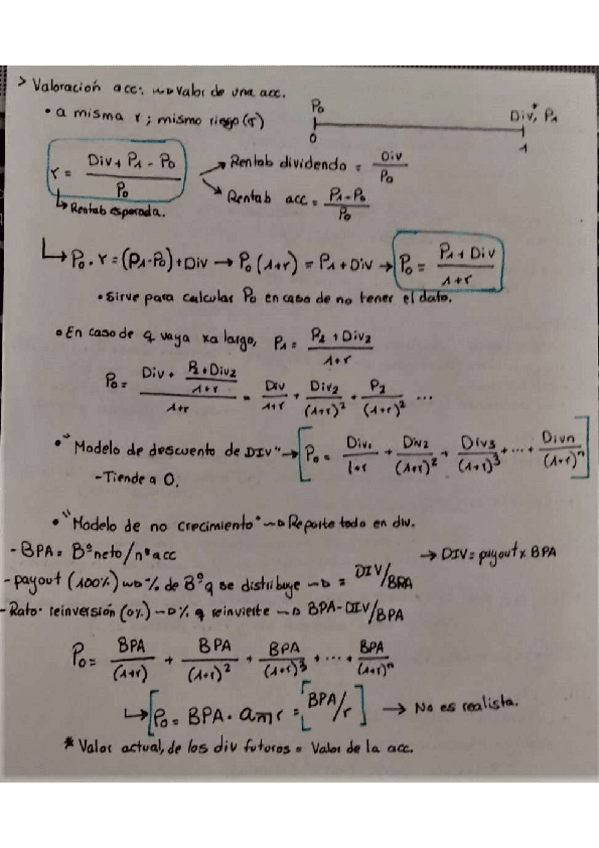 > Valoración acc: ⇝ Valor de una acc.
• a misma r ; mismo riesgo (σ)
P₀ Div, P₁
0 1
r = (Div + P₁ - P₀) / P₀
→ Rentab dividendo = Div / P₀
→ Rentab acc = (P₁ - P₀) / P₀
↳ Rentab esperada.
↳ P₀ · r = (P₁-P₀) + Div → P₀ (1+r) = P₁ + Div → P₀ = (P₁ + Div) / (1+r)
• Sirve para calcular P₀ en caso de no tener el dato.
• En caso de q vaya xa largo, P₁ = (P₂ + Div₂) / (1+r)
P₀ = (Div + (P₂ + Div₂) / (1+r)) / (1+r) = Div / (1+r) + Div₂ / (1+r)² + P₂ / (1+r)² ...
• "Modelo de descuento de DIV" → [P₀ = Div₁ / (1+r) + Div₂ / (1+r)² + Div₃ / (1+r)³ + ... + Divn / (1+r)ⁿ]
- Tiende a 0.
• "Modelo de no crecimiento" → Reparte todo en div.
- BPA = Bº neto / nº acc → DIV = payout x BPA
- payout (100%) ⇝ % de Bº q se distribuye → = DIV/BPA
- Rato · reinversión (0%) → % q reinvierte → BPA-DIV/BPA
P₀ = BPA / (1+r) + BPA / (1+r)² + BPA / (1+r)³ + ... + BPA / (1+r)ⁿ
↳ [P₀ = BPA · a∞r = [BPA/r] → No es realista.
* Valor actual, de los div futuros = Valor de la acc.